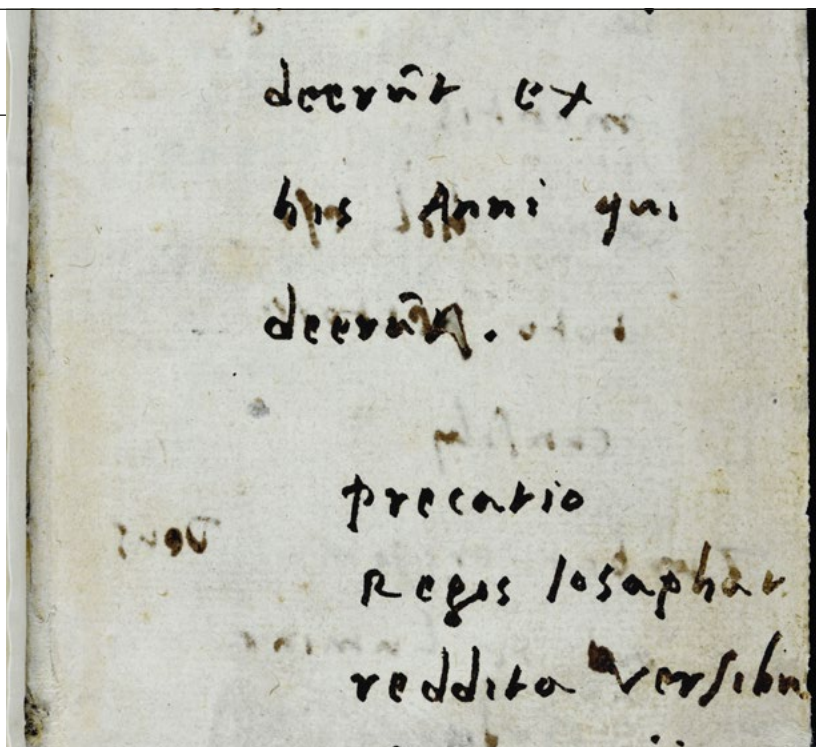 deerũt ex
his Anni qui
deerũt.
precatio
Regis Iosaphat
reddita versibu